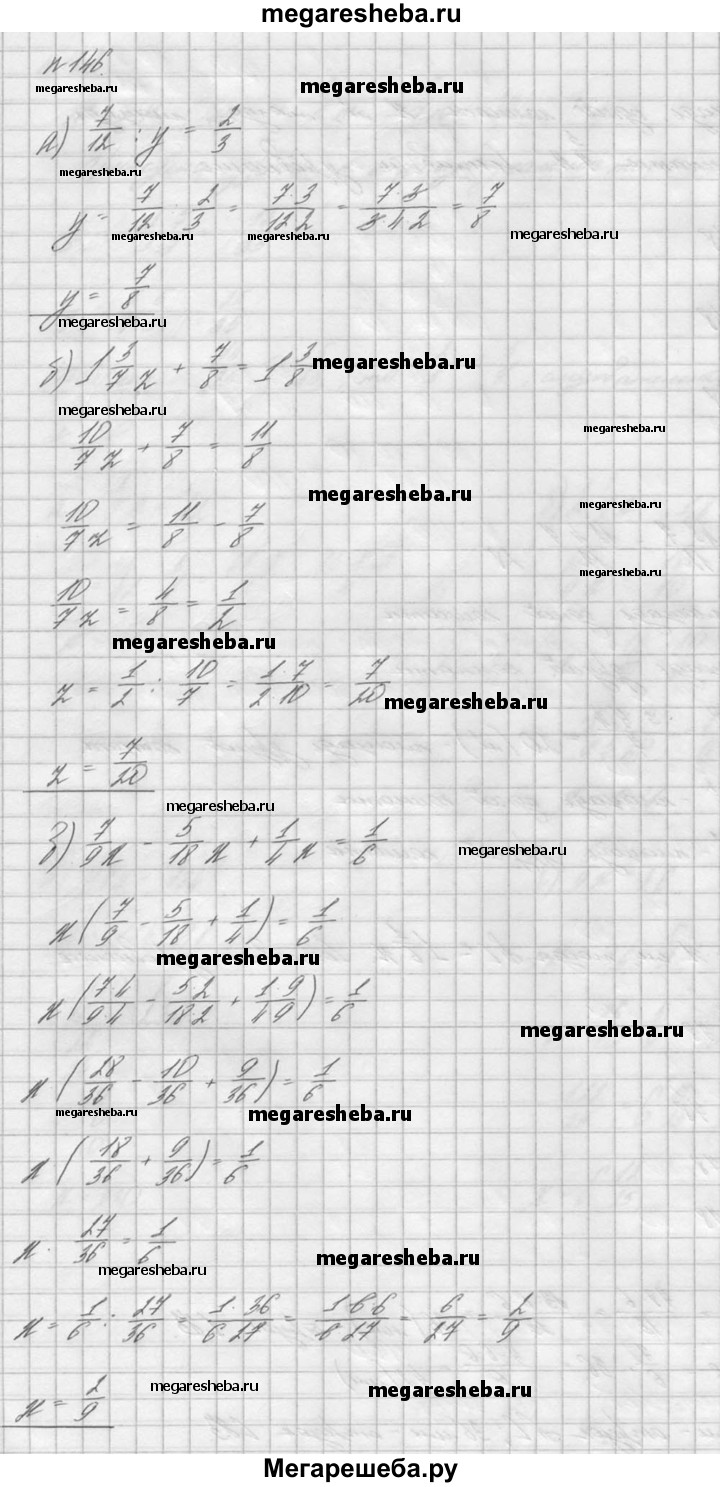 megaresheba.ru
n 146.
megaresheba.ru megaresheba.ru
а) 7/12 : y = 2/3
megaresheba.ru
y = 7/12 : 2/3 = 7·3/12·2 = 7·3/3·4·2 = 7/8
megaresheba.ru megaresheba.ru megaresheba.ru
y = 7/8
megaresheba.ru
б) 1 3/7 z + 7/8 = 1 3/8 megaresheba.ru
megaresheba.ru
10/7 z + 7/8 = 11/8 megaresheba.ru
megaresheba.ru
10/7 z = 11/8 - 7/8 megaresheba.ru
10/7 z = 4/8 = 1/2 megaresheba.ru
megaresheba.ru
z = 1/2 : 10/7 = 1·7/2·10 = 7/20 megaresheba.ru
z = 7/20
megaresheba.ru
в) 7/9 x - 5/18 x + 1/4 x = 1/6 megaresheba.ru
x (7/9 - 5/18 + 1/4) = 1/6
megaresheba.ru
x (7·4/9·4 - 5·2/18·2 + 1·9/4·9) = 1/6
megaresheba.ru
x (28/36 - 10/36 + 9/36) = 1/6
megaresheba.ru megaresheba.ru
x (18/36 + 9/36) = 1/6
x · 27/36 = 1/6
megaresheba.ru megaresheba.ru
x = 1/6 : 27/36 = 1·36/6·27 = 1·6·6/6·27 = 6/27 = 2/9
megaresheba.ru megaresheba.ru
x = 2/9
Мегарешеба.ру